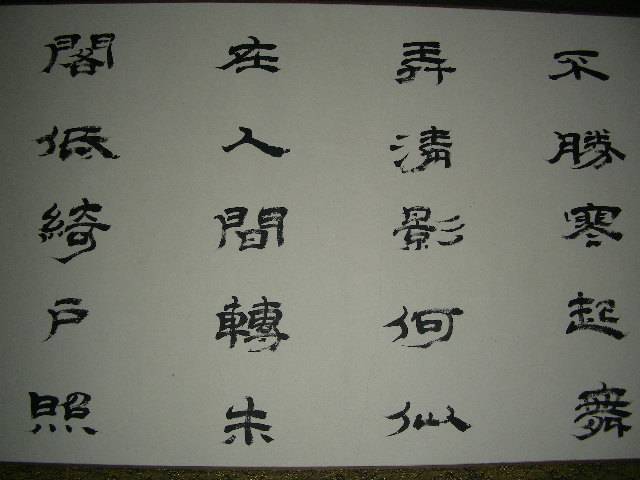 不勝寒起舞
弄清影何似
在人間轉朱
閣低綺戶照